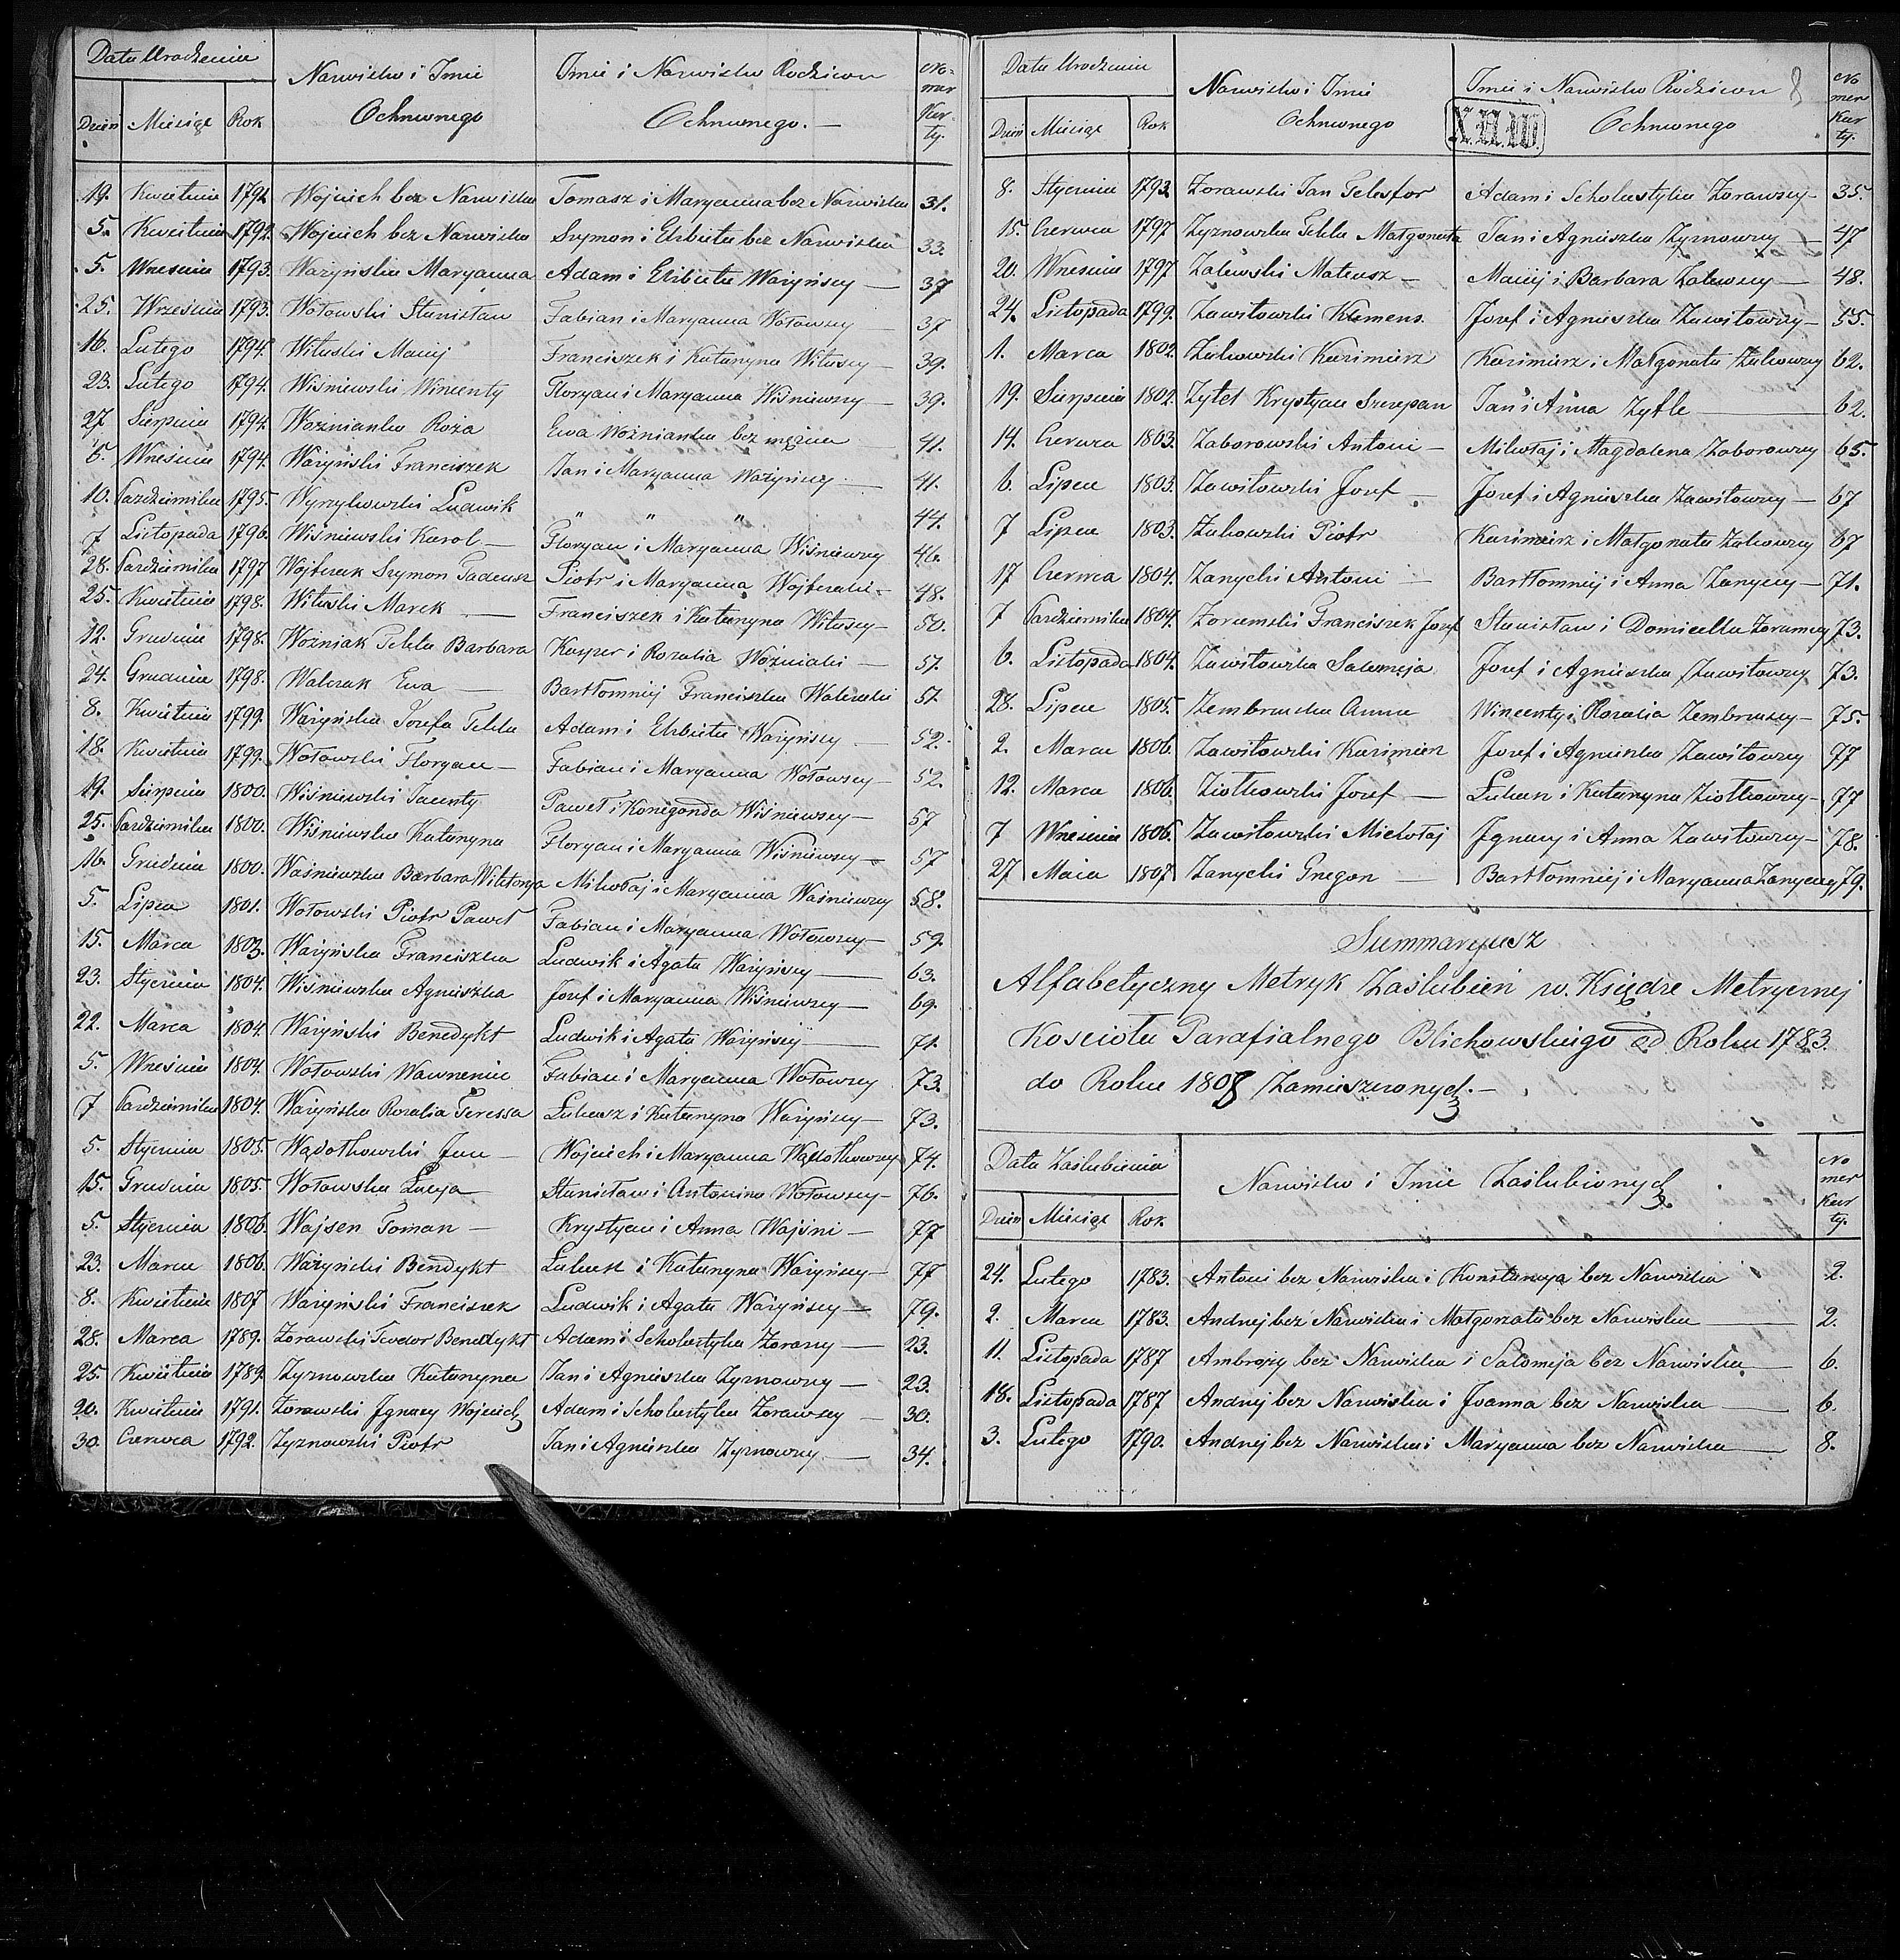 Data Urodzenia
Nazwisko i Imie
Ochrzconego
Imie i Nazwisko Rodzicow
Ochrzconego.—
No-
mer
Kar-
ty.
Dzień Miesiąc Rok
19. Kwietnia 1791 Wojciech bez Nazwiska Tomasz i Maryanna bez Nazwiska 31.
5. Kwietnia 1792. Wojciech bez Nazwiska Szymon i Elzbieta bez Nazwiska 33.
5. Wrzesnia 1793. Ważyńska Maryanna Adam i Elzbieta Ważyńscy — 37
25. Września 1793. Wołowski Stanisław Fabian i Maryanna Wołowscy — 37
16. Lutego 1794. Wituski Maciej Franciszek i Katarzyna Wituscy — 39.
23. Lutego 1794. Wiśniewski Wincenty Floryan i Maryanna Wiśniewscy — 39.
27 Sierpnia 1794. Woznianka Roża Ewa Wozńianka bez mężna — 41.
5. Wrzesnia 1794. Ważyński Franciszek Jan i Maryanna Ważyńscy — 41.
10. Pazdziernika 1795. Wyrzykowski Ludwik " " " 44.
7 Listopada 1796. Wiśniewski Karol — Floryan i Maryanna Wiśniewscy 46.
28. Pazdziernika 1797 Wojtczak Szymon Tadeusz Piotr i Maryanna Wojtczaki — 48.
25. Kwietnia 1798. Wituski Marek — Franciszek i Katarzyna Wituscy — 50.
12. Grudnia 1798. Wozniak Tekla Barbara Kasper i Rozalia Woźniaki — 51.
24. Grudnia 1798. Walczak Ewa — Bartłomniej Franciszka Walczaki 51.
8. Kwietnia 1799. Ważyńska Jozefa Tekla Adam i Elzbieta Ważyńscy — 52.
18. Kwietnia 1799. Wołowski Floryan — Fabian i Maryanna Wołowscy — 52.
19. Sierpnia 1800. Wiśniewski Jacenty Paweł i Konegonda Wiśniewscy — 57
25. Pazdziernika 1800. Wiśniewska Katarzyna Floryan i Maryanna Wiśniewscy — 57
16. Grudnia 1800. Waśniewska Barbara Wiktorya Mikołaj i Maryanna Waśniewscy 58.
5. Lipca 1801. Wołowski Piotr Paweł Fabian i Maryanna Wołowscy — 59.
15. Marca 1803. Ważyńska Franciszka Ludwik i Agata Ważyńscy — 63.
23. Stycznia 1804. Wiśniewska Agnieszka Jozef i Maryanna Wiśniewscy — 69.
22. Marca 1804. Ważyński Benedykt Ludwik i Agata Ważyńscy — 71.
5. Wrzesnia 1804. Wołowski Wawrzeniec Fabian i Maryanna Wołowscy 73.
7 Pazdziernika 1804. Ważyńska Rozalia Teressa Łukasz i Katarzyna Ważyńscy — 73.
5. Stycznia 1805. Wądołkowski Jan — Wojciech i Maryanna Wądołkowscy 74.
15. Grudnia 1805. Wołowska Łucya Stanisław i Antonina Wołowscy — 76.
5. Stycznia 1806. Wajsen Toman — Krystyan i Anna Wajsni — 77
23. Marca 1806. Ważyński Bendykt Łukasz i Katarzyna Ważyńscy — 77
8. Kwietnia 1807 Ważyński Franciszek Ludwik i Agata Ważyńscy — 79.
28. Marca 1789. Zorawski Teodor Benedykt Adam i Scholastyka Zorascy — 23.
25. Kwietnia 1789. Zyznowska Katarzyna Jan i Agnieszka Zyznowscy — 23.
20. Kwietnia 1791. Zorawski Ignacy Wojciech Adam i Scholastyka Zorawscy — 30.
30. Czerwca 1792. Zyznowski Piotr Jan i Agnieszka Zyznowscy — 34.
8
Data Urodzenia
Nazwisko i Imie
Ochrzconego
Imie i Nazwisko Rodzicow
Ochrzconego
No
mer
Kar
ty.
Dzień Miesiąc Rok
8. Stycznia 1793. Zorawski Jan Telesfor Adam i Scholastyka Zorawscy — 35.
15. Czerwca 1797 Zyznowska Tekla Małgorzata Jan i Agnieszka Zyznowscy — 47
20. Wrzesnia 1797 Zalewski Mateusz — Maciej i Barbara Zalewscy — 48.
24. Listopada 1799. Zawitowski Klemens Jozef i Agnieszka Zawitowscy — 55.
1. Marca 1802. Zukowski Kazimierz Kazimierz i Małgorzata Zukowscy 62.
19. Sierpnia 1802. Zytel Krystyan Szczepan Jan i Anna Zytle — 62.
14. Czerwca 1803. Zaborowski Antoni — Mikołaj i Magdalena Zaborowscy 65.
6. Lipca 1803. Zawitowski Jozef — Jozef i Agnieszka Zawitowscy — 67
7 Lipca 1803. Zukowski Piotr Kazimierz i Małgorzata Zukowscy 67
17 Czerwca 1804. Zarzycki Antoni — Bartłomniej i Anna Zarzyccy — 71.
7 Pazdziernika 1804. Zoremski Franciszek Jozef Stanisław i Domicella Zoremscy 73.
6. Listopada 1804. Zawitowska Salomeja Jozef i Agnieszka Zawitowscy 73.
28. Lipca 1805. Zembrzuska Anna Wincenty i Rozalia Zembrzuscy — 75.
2. Marca 1806. Zawitowski Kazimierz Jozef i Agnieszka Zawitowscy 77
12. Marca 1806. Ziołkowski Jozef — Łukasz i Katarzyna Ziołkowscy — 77
7 Wrzesnia 1806. Zawitowski Mickołaj Ignacy i Anna Zawitowscy — 78.
27 Maia 1807. Zarzycki Grzegorz — Bartłomniej i Maryanna Zarzyccy 79.
Summaryusz
Alfabetyczny Metryk Zaślubień w. Księdze Metrycznej
Kościoła Parafialnego Blichowskiego od Roku 1783.
do Roku 1808 Zamieszczonych. —
Data Zaślubienia
Nazwisko i Imie Zaślubionych
No
mer
Kar
ty.
Dzień Miesiąc Rok.
24. Lutego 1783. Antoni bez Nazwiska i Konstancya bez Nazwiska 2.
2. Marca 1783. Andrzej bez Nazwiska i Małgorzata bez Nazwiska — 2.
11. Listopada 1787 Ambrozy bez Nazwiska i Salomeja bez Nazwiska — 6.
18. Listopada 1787 Andrzej bez Nazwiska i Joanna bez Nazwiska — 6.
3. Lutego 1790. Andrzej bez Nazwiska i Maryanna bez Nazwiska — 8.